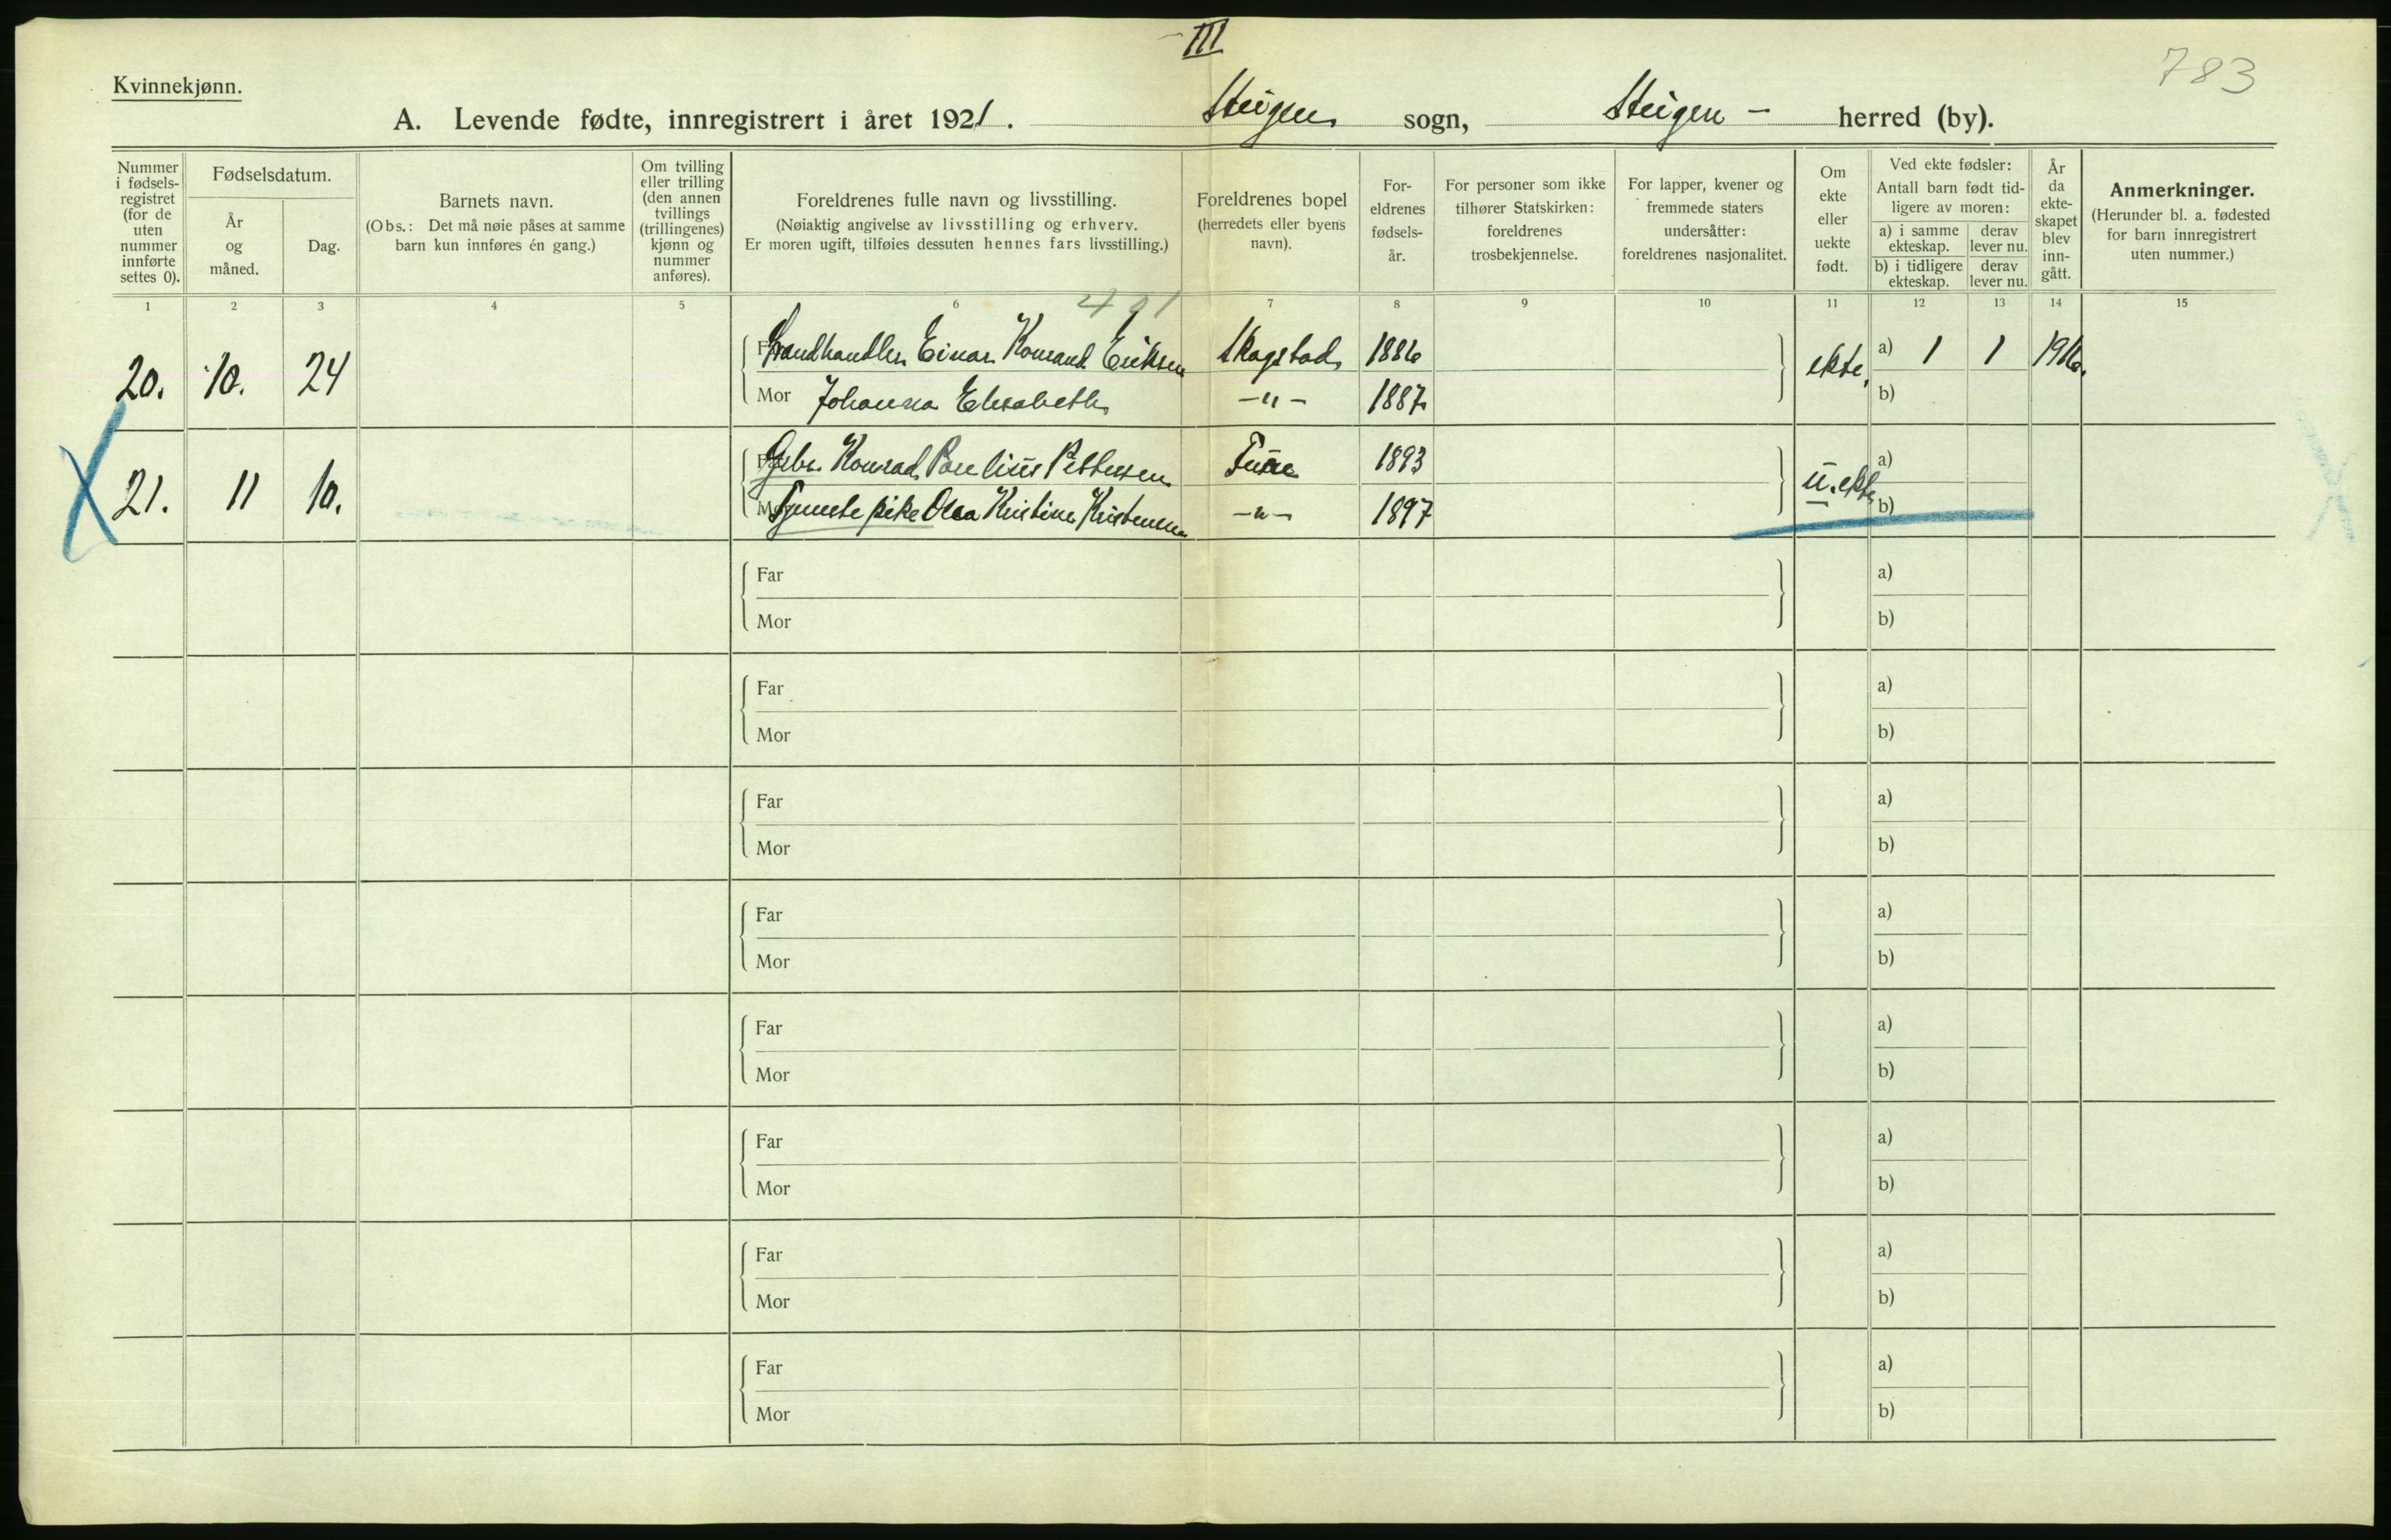 III
783
Kvinnekjønn.
A. Levende fødte, innregistrert i året 1921. Steigen sogn, Steigen - herred (by).
Nummer i fødsels-registret (for de uten nummer innførte settes 0).
Fødselsdatum.
År og måned.
Dag.
Barnets navn.
(Obs.: Det må nøie påses at samme barn kun innføres én gang.)
Om tvilling eller trilling (den annen tvillings (trillingenes) kjønn og nummer anføres).
Foreldrenes fulle navn og livsstilling.
(Nøiaktig angivelse av livsstilling og erhverv.
Er moren ugift, tilføies dessuten hennes fars livsstilling.)
Foreldrenes bopel
(herredets eller byens navn).
For-eldrenes fødsels-år.
For personer som ikke tilhører Statskirken: foreldrenes trosbekjennelse.
For lapper, kvener og fremmede staters undersåtter: foreldrenes nasjonalitet.
Om ekte eller uekte født.
Ved ekte fødsler:
Antall barn født tid-ligere av moren:
a) i samme ekteskap.
derav lever nu.
b) i tidligere ekteskap.
derav lever nu.
År da ekte-skapet blev inn-gått.
Anmerkninger.
(Herunder bl. a. fødested for barn innregistrert uten nummer.)
1 2 3 4 5 6 7 8 9 10 11 12 13 14 15
401
20. 10. 24 Landhandler Einar Konrad Eriksen Skagstad 1886 ekte, a) 1 1 1916.
Mor Johanna Elisabeth -"- 1887 b)
21. 11 10. Konrad Paulius Pettersen 1893 u.ekte a)
Tjeneste pike Kristine Kristensen -"- 1897 b)
Far a)
Mor b)
Far a)
Mor b)
Far a)
Mor b)
Far a)
Mor b)
Far a)
Mor b)
Far a)
Mor b)
Far a)
Mor b)
Far a)
Mor b)